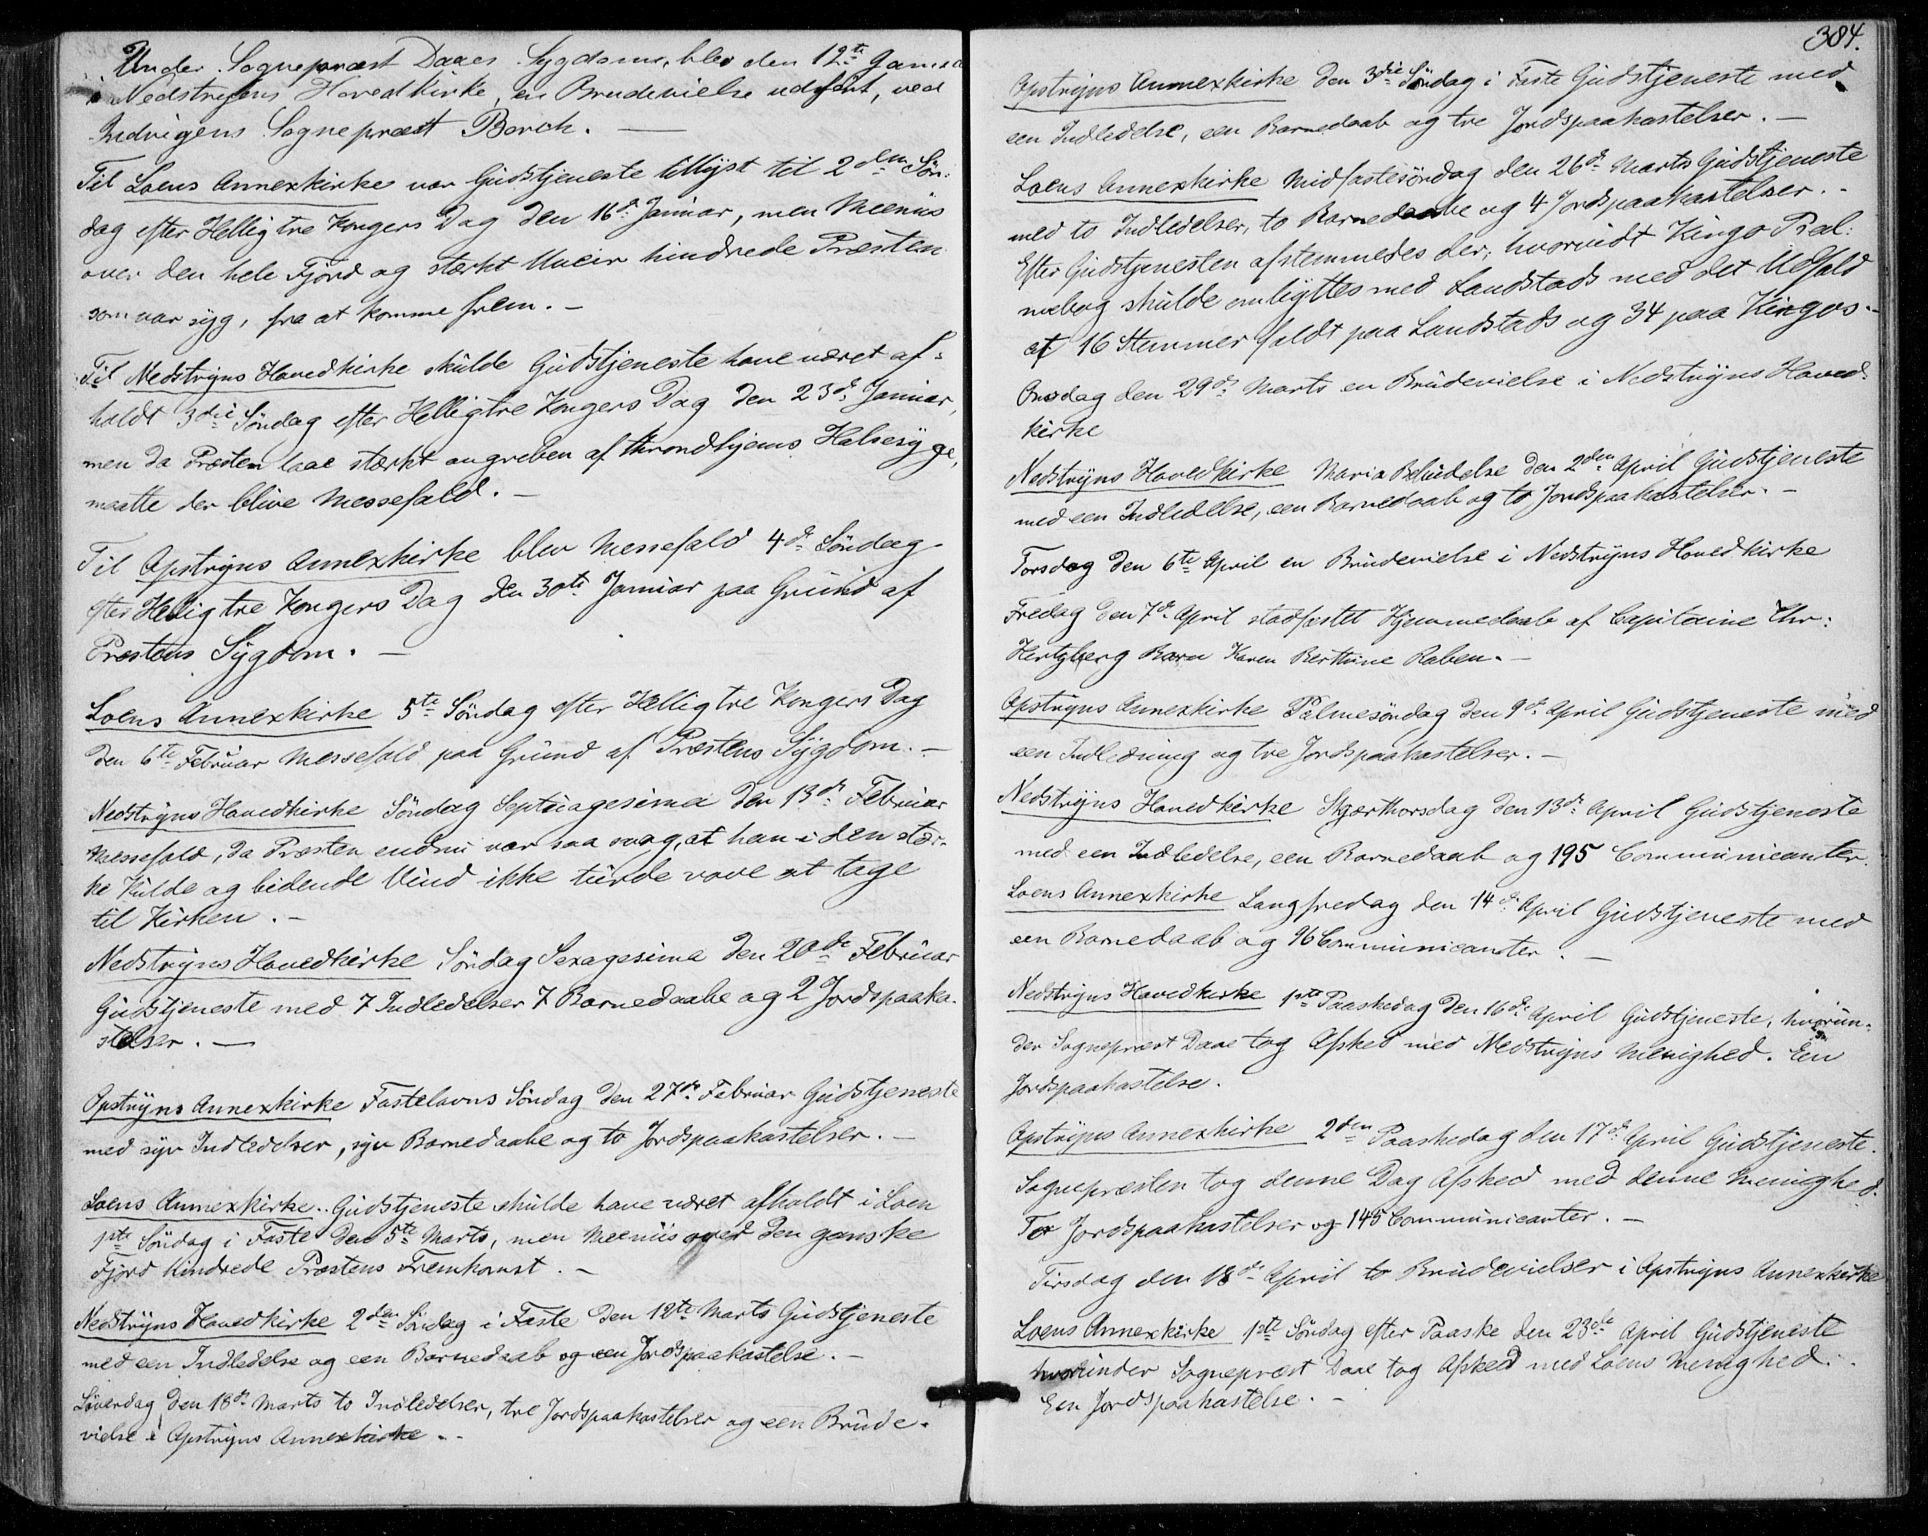 Under Sognepræst Daaes Sygdom, blev den 12te Janua
i Nedstryns Hovedkirke, en Brudevielse udført, ved
Indvigens Sognepræst Borch. —
Til Loens Annexkirke var Gudstjeneste tillyst til 2den Søn-
dag efter Hellig tre Kongers Dag den 16de Januar, men Meeniis
over den hele Fjord og stærkt Uveir hindrede Præsten
som var syg, fra at komme frem. —
Til Nedstryns Hovedkirke skulde Gudstjeneste have været af-
holdt 3die Søndag efter Hellig tre Kongers Dag den 23de Januar,
men da Præsten laae stærkt angreben af throndhjems Halsesyge,
maatte der blive Messefald. —
Til Opstryns Annexkirke blev Messefald 4de Søndag
efter Hellig tre Kongers Dag den 30te Januar paa Grund af
Præstens Sygdom. —
Loens Annexkirke 5te Søndag efter Hellig tre Kongers Dag
den 6te Februar Messefald paa Grund af Præstens Sygdom. —
Nedstryns Hovedkirke Søndag Septuagesima den 13de Februar
Messefald, da Præsten endnu var saa svag, at han i den stær-
ke Kulde og bidende Vind ikke turde vove at tage
til Kirken. —
Nedstryns Hovedkirke Søndag Sexagesima den 20de Februar
Gudstjeneste med 7 Indledelser 7 Barnedaabe og 2 Jordspaaka-
stelser. —
Opstryns Annexkirke Fastelavns Søndag den 27de Februar Gudstjeneste
med syv Indledelser, syv Barnedaabe og to Jordspaakastelser. —
Loens Annexkirke. Gudstjeneste skulde have været afholdt i Loen
1ste Søndag i Faste den 5te Marts, men Meeniis over den ganske
Fjord hindrede Præstens Fremkomst. —
Nedstryns Hovedkirke 2den Søndag i Faste den 12te Marts Gudstjeneste
med een Indledelse og een Barnedaab og een Jordspaakastelse. —
Løverdag den 18de Marts to Indledelser, tre Jordspaakastelser og een Brude-
vielse i Opstryns Annexkirke. —
384.
Opstryns Annexkirke den 3die Søndag i Faste Gudstjeneste med
een Indledelse, een Barnedaab og tre Jordspaakastelser. —
Loens Annexkirke Midfastesøndag den 26de Marts Gudstjeneste
med to Indledelser, to Barnedaabe og 4 Jordspaakastelser. —
Efter Gudstjenesten afstemmedes der, hvorvidt Kingo Psal-
mebog skulde ombyttes med Landstads med det Udfald
at 16 Stemmer faldt paa Landstads og 34 paa Kingos. —
Onsdag den 29de Marts en Brudevielse i Nedstryns Hoved-
kirke
Nedstryns Hovedkirke Maria Bebudelse den 2den April Gudstjeneste
med een Indledelse, een Barnedaab og to Jordspaakastelser. —
Torsdag den 6te April en Brudevielse i Nedstryns Hovedkirke
Fredag den 7de April stadfæstet Hjemmedaab af Capitaine Chr:
Hertzberg Barn Karen Berthine Raben. —
Opstryns Annexkirke Palmesøndag den 9de April Gudstjeneste med
een Indledning og tre Jordspaakastelser. —
Nedstryns Hovedkirke Skjærthorsdag den 13de April Gudstjeneste
med een Indledelse, een Barnedaab og 195 Communicanter.
Loens Annexkirke Langfredag den 14de April Gudstjeneste med
een Barnedaab og 96 Communicanter. —
Nedstryns Hovedkirke 1ste Paaskedag den 16de April Gudstjeneste, hvorun-
der Sognepræst Daae tog Afsked med Nedstryns Menighed. Een
Jordspaakastelse.
Opstryns Annexkirke 2den Paaskedag den 17de April Gudstjeneste.
Sognepræsten tog denne Dag Afsked med denne Menighed.
To Jordspaakastelser og 145 Communicanter. —
Tirsdag den 18de April to Brudevielser i Opstryns Annexkirke
Loens Annexkirke 1ste Søndag efter Paaske den 23de April Gudstjeneste
hvorunder Sognepræst Daae tog Afsked med Loens Menighed. —
Een Jordspaakastelse. —